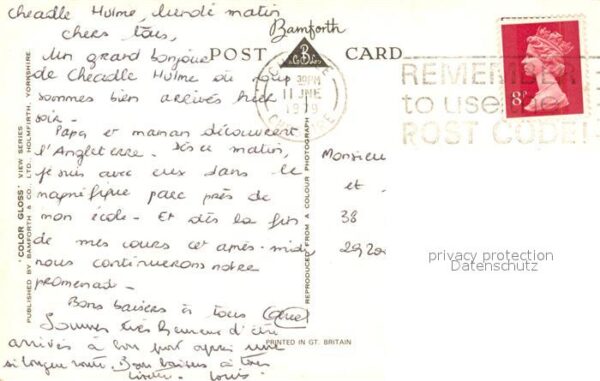 Cheadle Hulme, lundi matin
Chers tous,
Un grand bonjour
de Cheadle Hulme où nous
sommes bien arrivés hier
soir.
Papa et maman découvrent
l'Angleterre. Dès ce matin,
je suis avec eux dans le
magnifique parc près de
mon école. Et dès la fin
de mes cours cet après-midi
nous continuerons notre
promenade.
Bons baisers à tous
Sommes très heureux d'être
arrivés à bon port après une
si longue route. Bons baisers à tous
Louis
Bamforth
POST CARD
B
3 30PM
11 JNE
1979
CHESHIRE
REMEMBER
to use the
POST CODE!
8P
Monsieur
et
38
2920
"COLOR GLOSS" VIEW SERIES
PUBLISHED BY BAMFORTH & CO., LTD., HOLMFIRTH, YORKSHIRE
REPRODUCED FROM A COLOUR PHOTOGRAPH
PRINTED IN GT. BRITAIN
privacy protection
Datenschutz